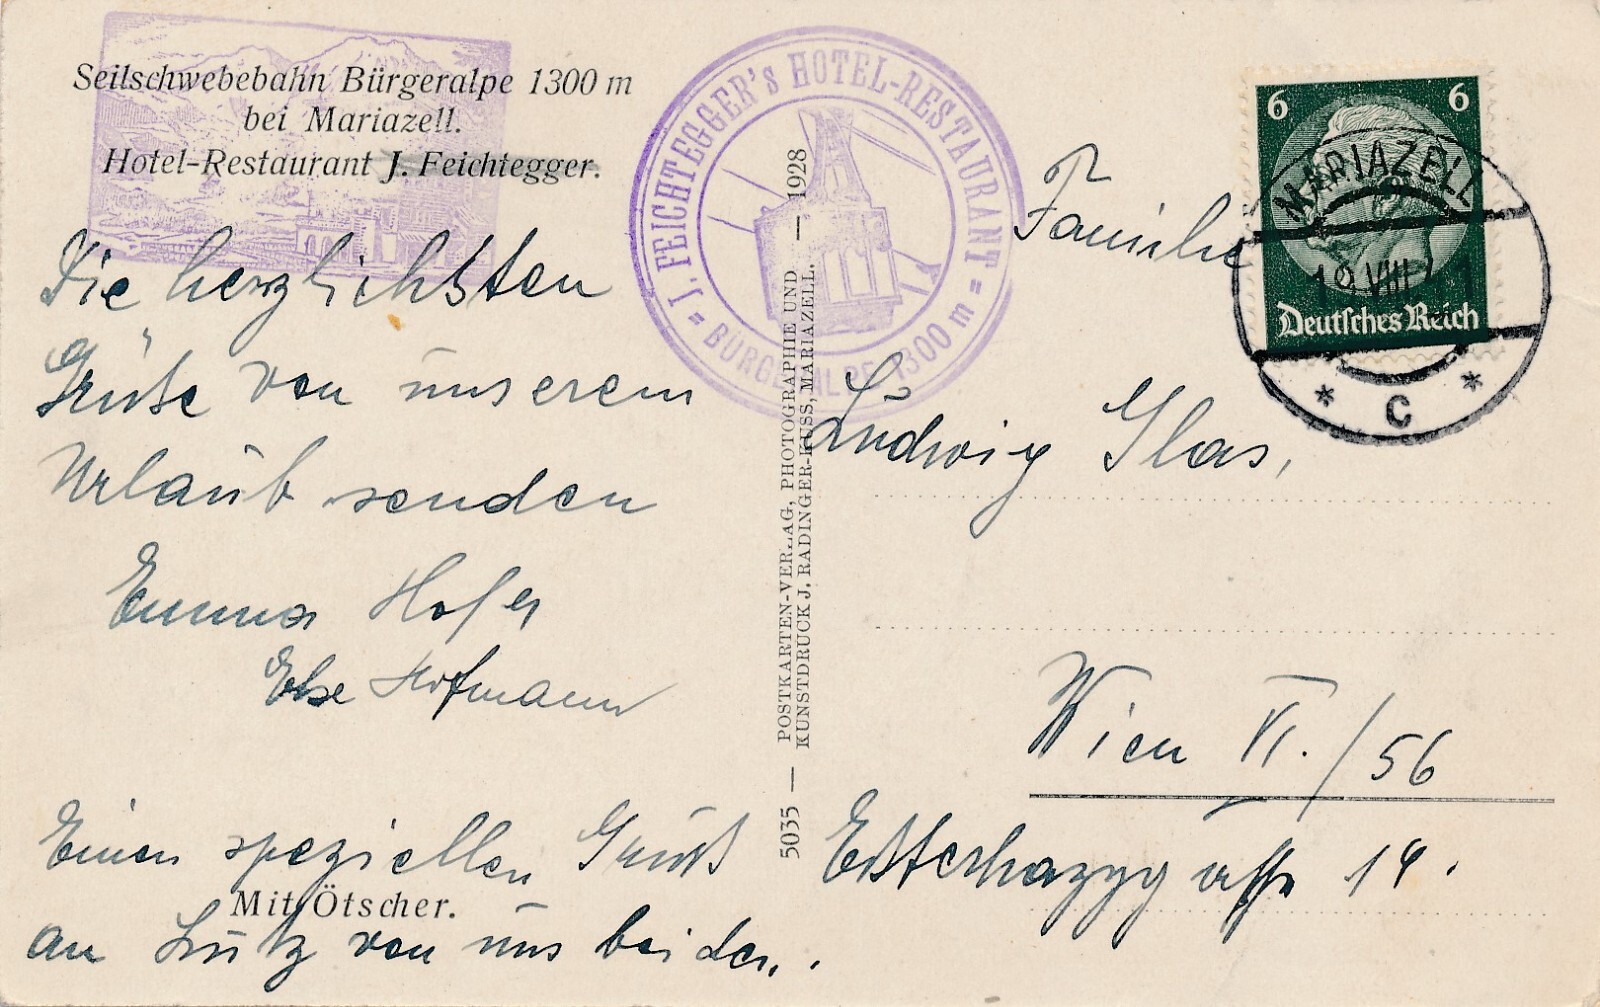 Seilschwebebahn Bürgeralpe 1300 m
bei Mariazell.
Hotel-Restaurant J. Feichtegger.
Die herzlichsten
Grüße von unserem
Urlaub senden
Emma Hofer
Else Hofmann
Einen speziellen Gruß
an Lutz von uns beiden.
Mit Ötscher.
J. FEICHTEGGER'S HOTEL-RESTAURANT
= BÜRGERALPE 1300 m =
5035 — POSTKARTEN-VERLAG, PHOTOGRAPHIE UND — 1928
KUNSTDRUCK J. RADINGER-KUSS, MARIAZELL.
6 6
Deutsches Reich
MARIAZELL
VIII
* C *
Familie
Ludwig Glas,
Wien VI./56
Esterhazygasse 14.